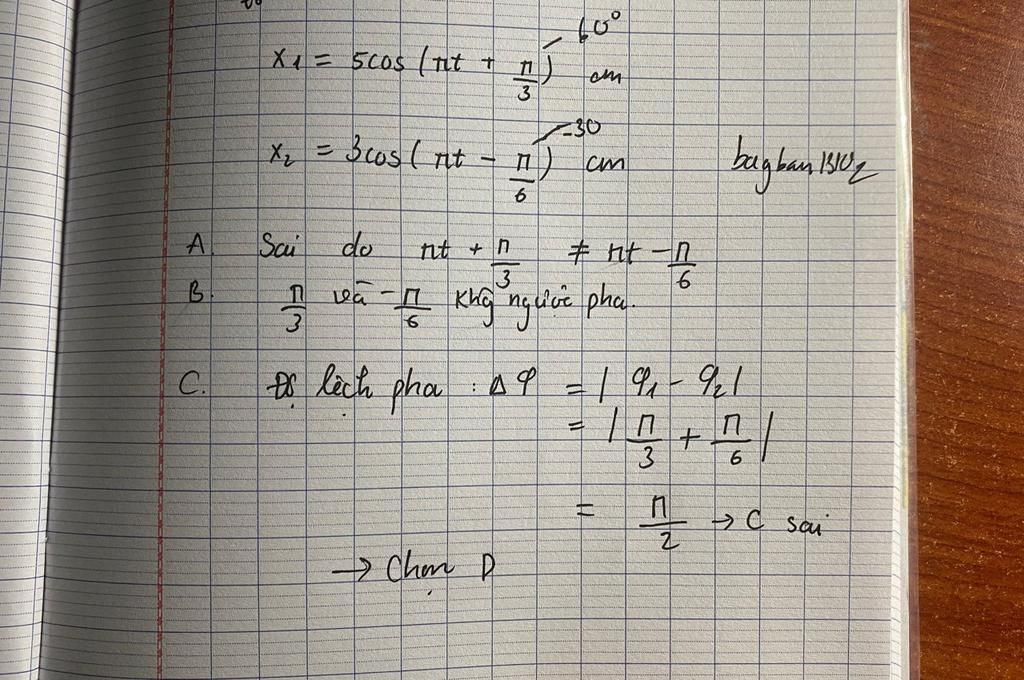 60°
x₁ = 5cos(πt + π/3) cm
-30
x₂ = 3cos(πt - π/6) cm
A. Sai do πt + π/3 ≠ πt - π/6
B. π/3 và -π/6 khg ngược pha.
C. Độ lệch pha : Δφ = |φ₁ - φ₂|
= |π/3 + π/6|
= π/2 → C sai
→ Chọn D